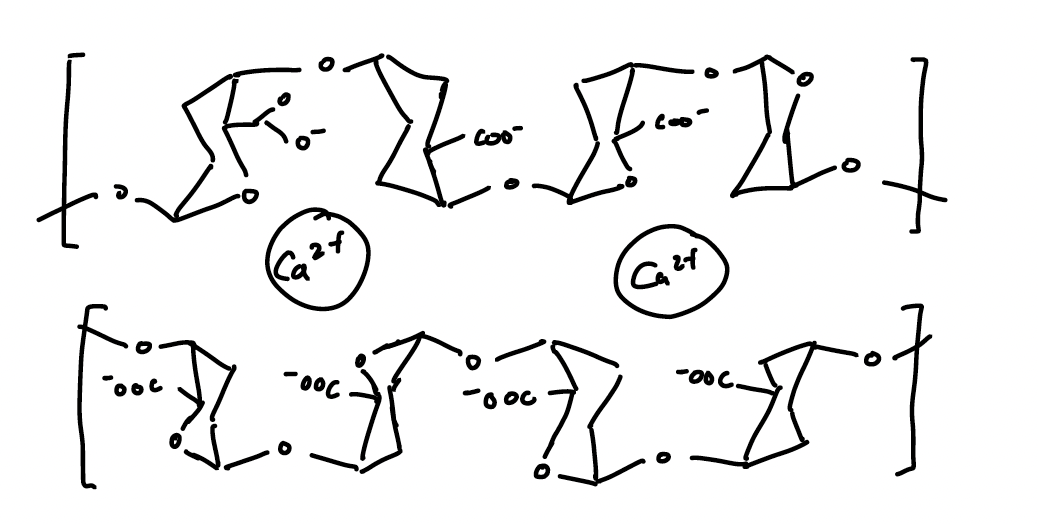 O O O
O
O⁻ COO⁻ COO⁻
O O O O O
Ca²⁺ Ca²⁺
O O O O
⁻OOC ⁻OOC ⁻OOC ⁻OOC
O O O O